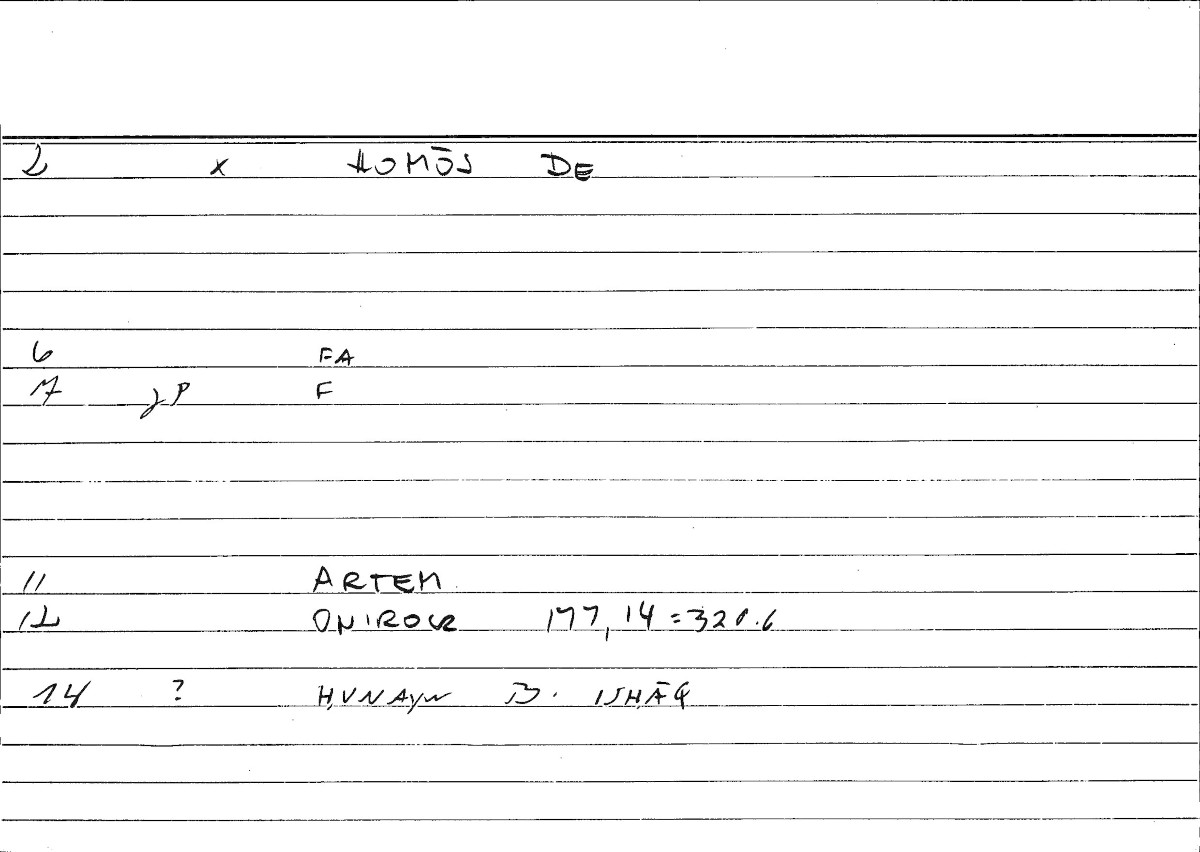 2 x HOMŌS DE
6 FA
7 JP F
11 ARTEM
12 ONIROCR 177,14=320.6
14 ? ḤUNAYN B. ISḤĀQ